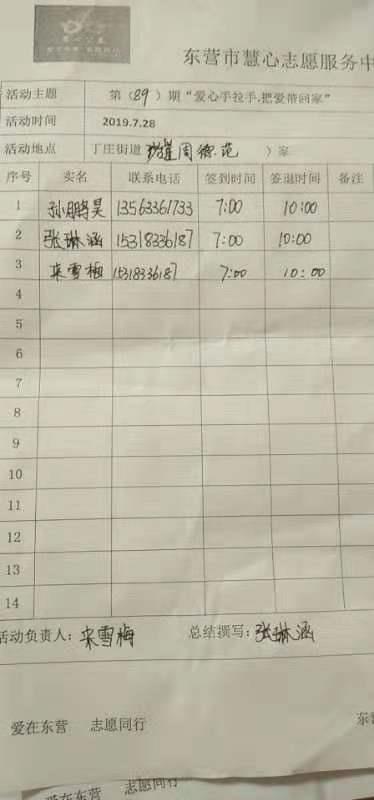 东营市慧心志愿服务中
活动主题 第（89）期“爱心手拉手,把爱带回家”
活动时间 2019.7.28
活动地点 丁庄街道 周德范 ）家
序号 实名 联系电话 签到时间 签退时间 备注
1 孙鹏昊 13563361733 7:00 10:00
2 张琳涵 15318336187 7:00 10:00
3 来雪梅 15318336187 7:00 10:00
4
5
6
7
8
9
10
11
12
13
14
活动负责人：来雪梅 总结撰写：张琳涵
爱在东营 志愿同行 东营
爱在东营 志愿同行